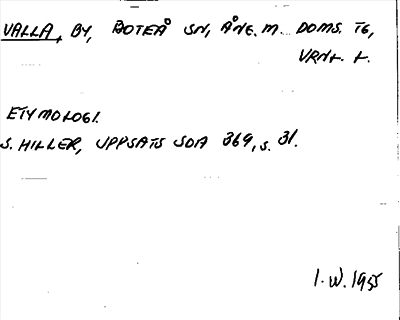 VALLA, BY, BOTEÅ SN, ÅNG. M. DOMS. TG,
VRNL. L.
ETYMOLOGI.
S. HILLER, UPPSATS SOA 369, S. 31.
I. W. 1955